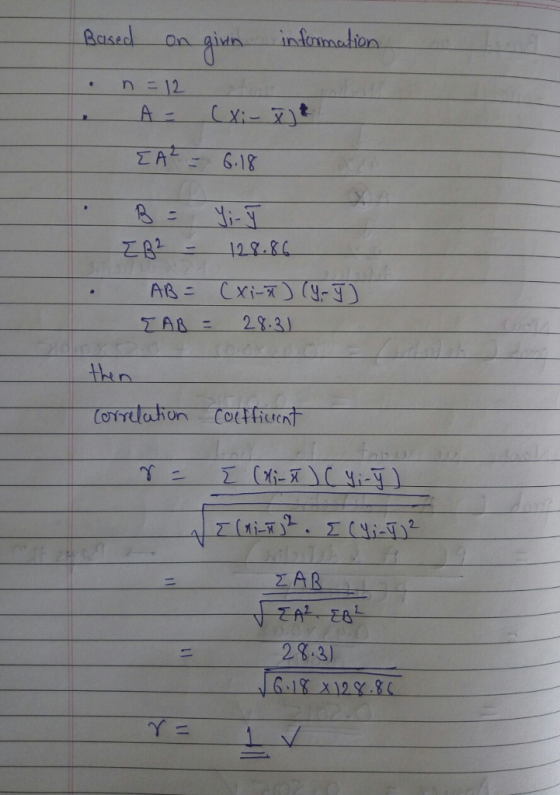 Based on givrn information
• n = 12
• A = (xi - x̄)
ΣA² = 6.18
• B = yi - ȳ
ΣB² = 128.86
• AB = (xi - x̄)(yi - ȳ)
ΣAB = 28.31
then
correlation coefficient
r = Σ(xi - x̄)(yi - ȳ)
√Σ(xi - x̄)² . Σ(yi - ȳ)²
= ΣAB
√ΣA² . ΣB²
= 28.31
√6.18 × 128.86
r = 1 ✓